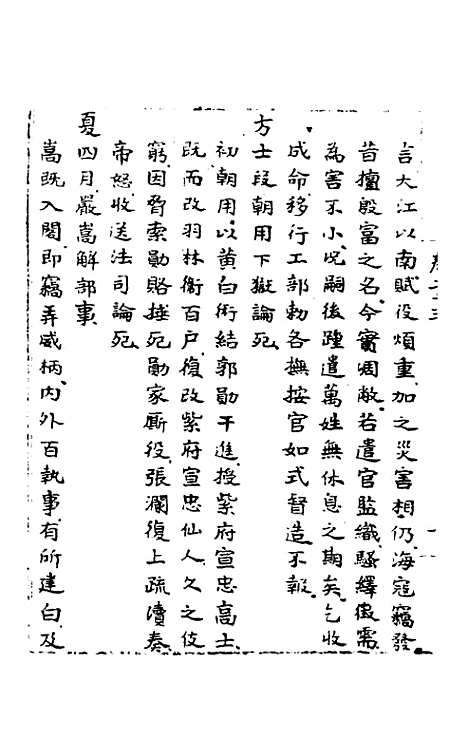 言大江以南賦役煩重加之災害相仍海寇竊發
昔擅殷富之名今實凋敝若遣官監織騷繹徵需
為害不小况嗣後踵遣萬姓無休息之期矣乞收
成命移行工部勅各撫按官如式督造不報
方士段朝用下獄論死
初朝用以黄白術結郭勛干進授紫府宣忠高士
既而改羽林衛百戶復改紫府宣忠仙人久之伎
窮因脅索勛賂捶死勛家厮役張瀾復上疏瀆奏
帝怒收送法司論死
夏四月嚴嵩解部事
嵩既入閣即竊弄威柄内外百執事有所建白及